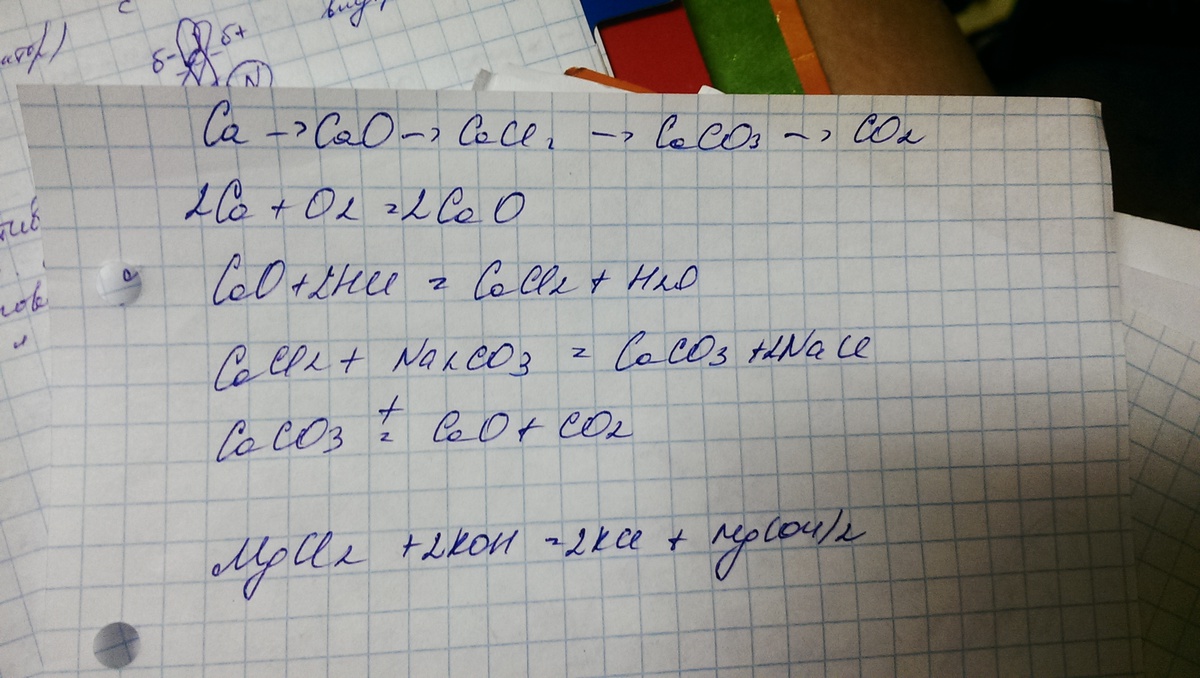 c
δ- δ+
N
Ca → CaO → CaCl2 → CaCO3 → CO2
2Ca + O2 = 2CaO
CaO + 2HCl = CaCl2 + H2O
CaCl2 + Na2CO3 = CaCO3 + 2NaCl
t
CaCO3 = CaO + CO2
MgCl2 + 2KOH = 2KCl + Mg(OH)2